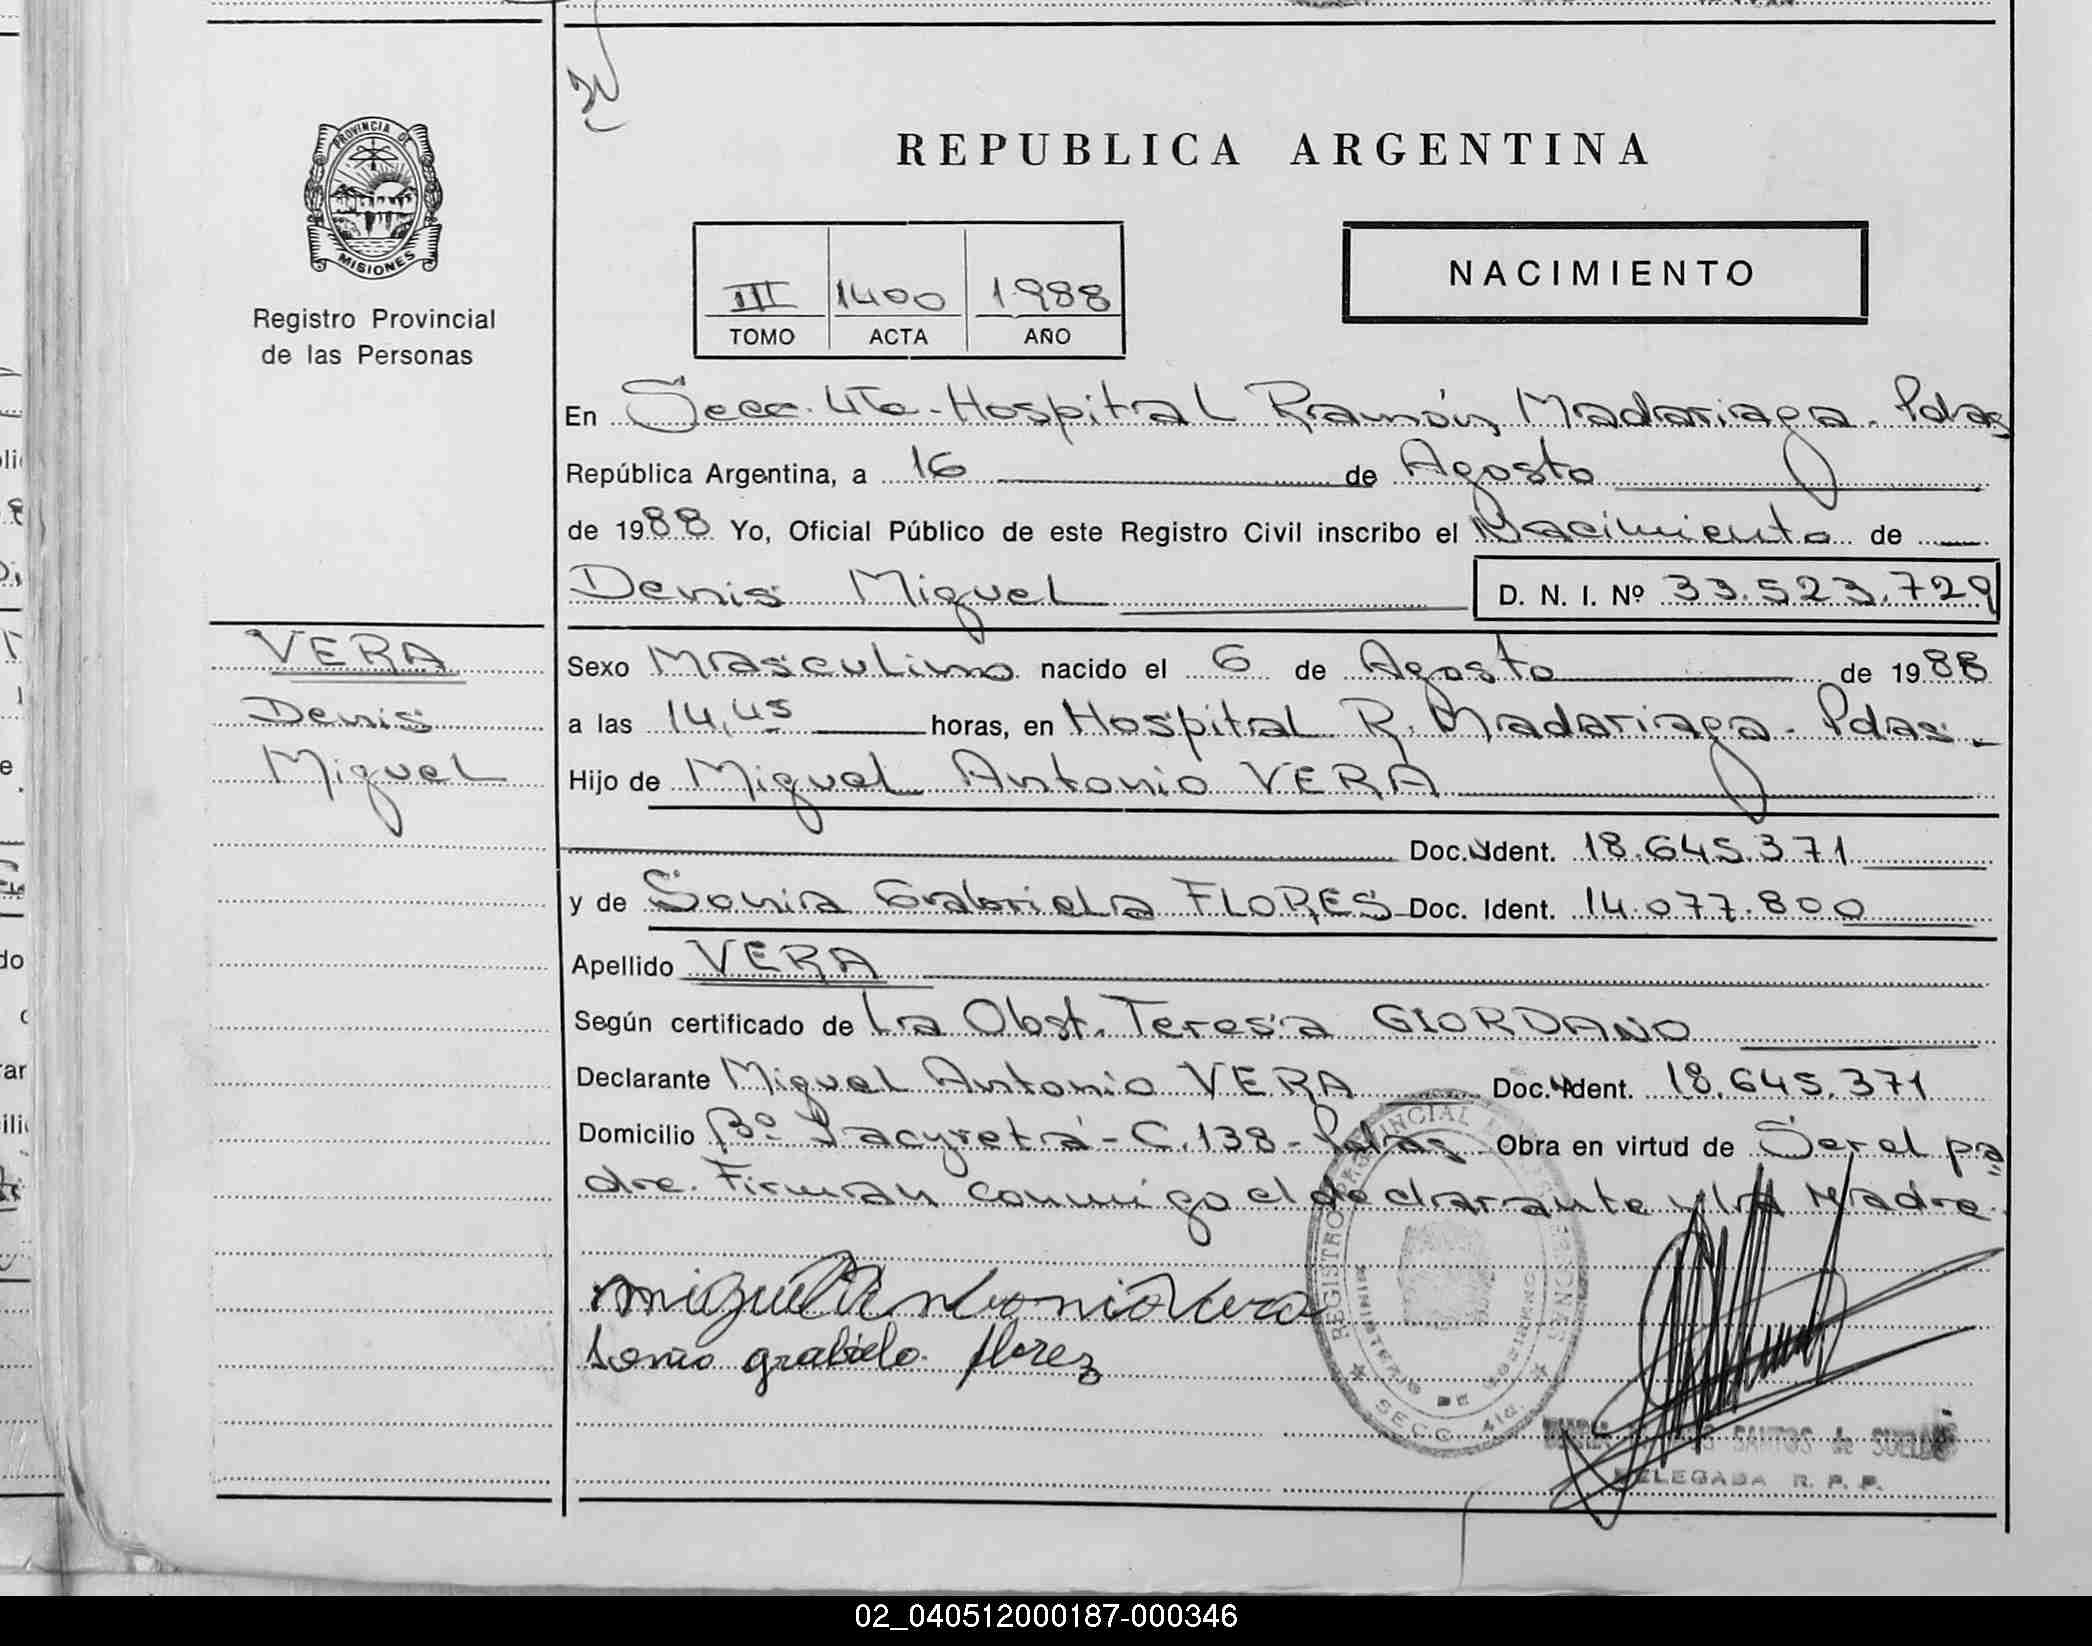 PROVINCIA DE
MISIONES
Registro Provincial
de las Personas
REPUBLICA ARGENTINA
NACIMIENTO
III 1400 1988
TOMO ACTA AÑO
En Secc. 4ta - Hospital Ramón Madariaga - Pdas
República Argentina, a 16 de Agosto
de 1988 Yo, Oficial Público de este Registro Civil inscribo el Nacimiento de
Denis Miguel D. N. I. Nº 33.523.729
VERA
Denis
Miguel
Sexo Masculino nacido el 6 de Agosto de 1988
a las 14,45 horas, en Hospital R. Madariaga - Pdas.-
Hijo de Miguel Antonio VERA
Doc. Ident. 18.645.371
y de Sonia Grabriela FLORES Doc. Ident. 14.077.800
Apellido VERA
Según certificado de La Obst. Teresa GIORDANO
Declarante Miguel Antonio VERA Doc. Ident. 18.645.371
Domicilio Bº Yacyretá - C. 138 - Pdas Obra en virtud de Ser el pa
dre. Firman conmigo el declarante y la Madre.
miguel Antonio Vera
Sonia grabiela florez
REGISTRO PROVINCIAL DE LAS PERSONAS
MINISTERIO DE GOBIERNO
SECC. 4ta.
SANTOS de
DELEGADA R. P. P.
02_040512000187-000346